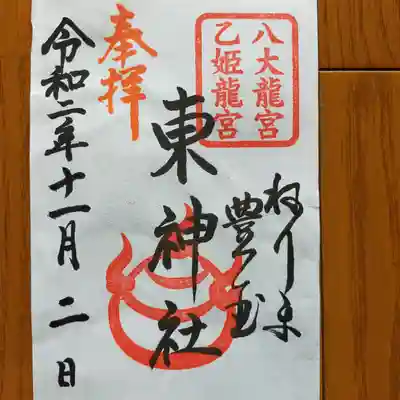 八大龍宮
乙姫龍宮
ねりま
豊玉
奉拝
東神社
令和二年十一月二日